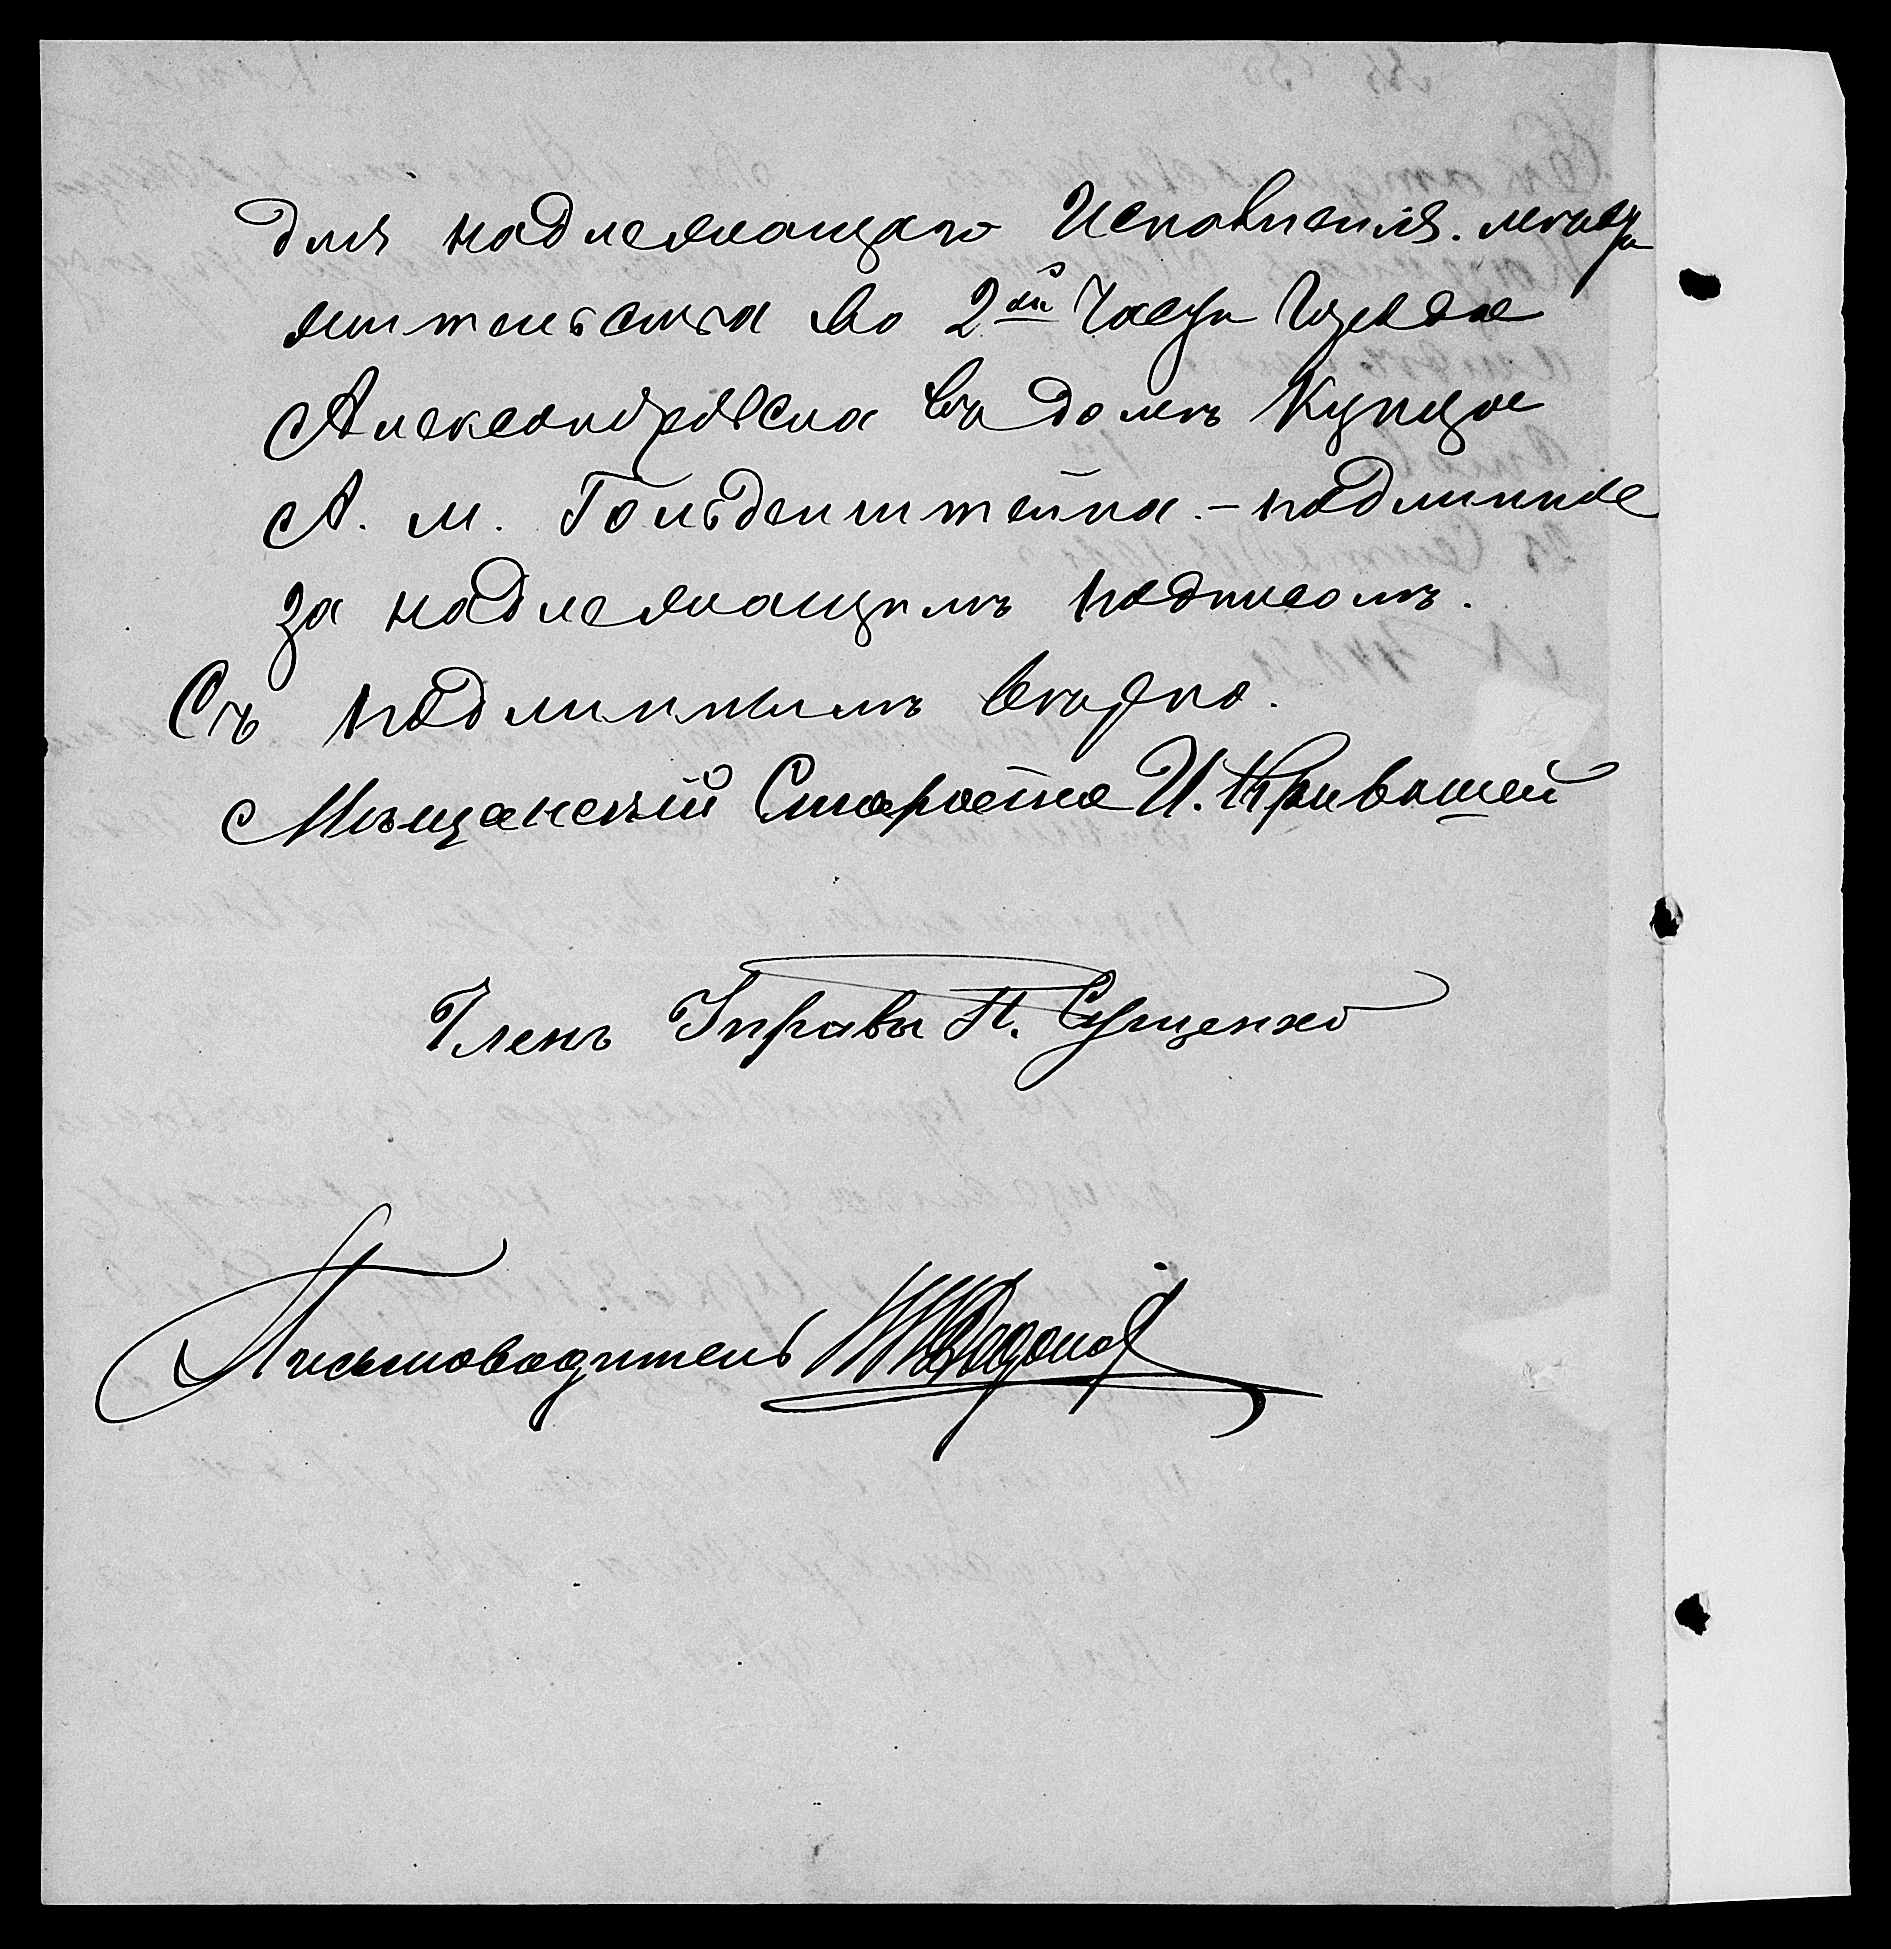 для надлежащаго Исполненія. место
жительства во 2ой Части Города
Александровска въ домѣ Купца
А. М. Гольденштейна. - подлинное
за надлежащимъ подписомъ.
Съ подлиннымъ вѣрно.
Мѣщанскій Староста И. Кривошей
Членъ Управы П. Сущенко
Письмоводитель